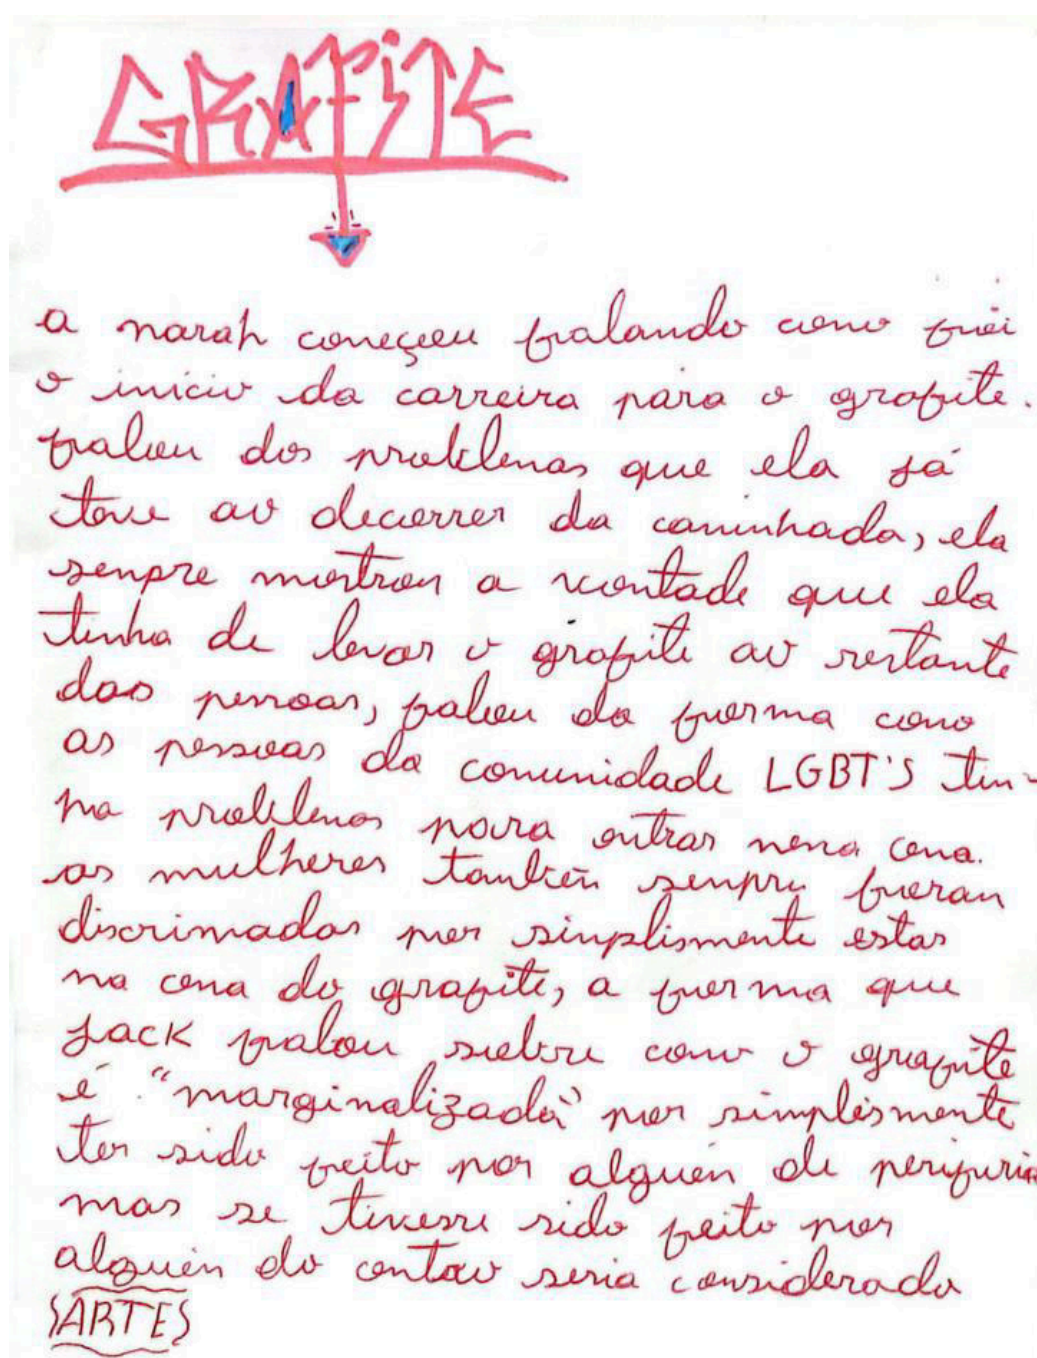 GRAFITE
a narah coneçou falando como foi
o início da carreira para o grafite.
falou dos problemas que ela já
teve ao decorrer da caminhada, ela
senpre mostrou a vontade que ela
tinha de levar o grafite ao restante
das pessoas, falou da forma como
as pessoas da comunidade LGBT'S tin-
ha problemas para entrar cena.
as mulheres tanbén senpre foran
discrimadas por sinplismente estar
na cena do grafite, a forma que
JACK falou sobre como o grafite
é "marginalizada" por simplismente
ter sido feito por alguén de periguria
mas se tivesse sido feito por
alguén do seria considerado
ARTE